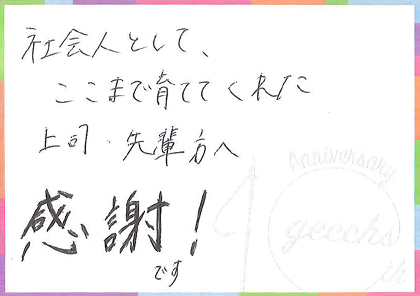 社会人として、
ここまで育ててくれた
上司・先輩方へ
感謝!
です
Anniversary
10
geechs
th